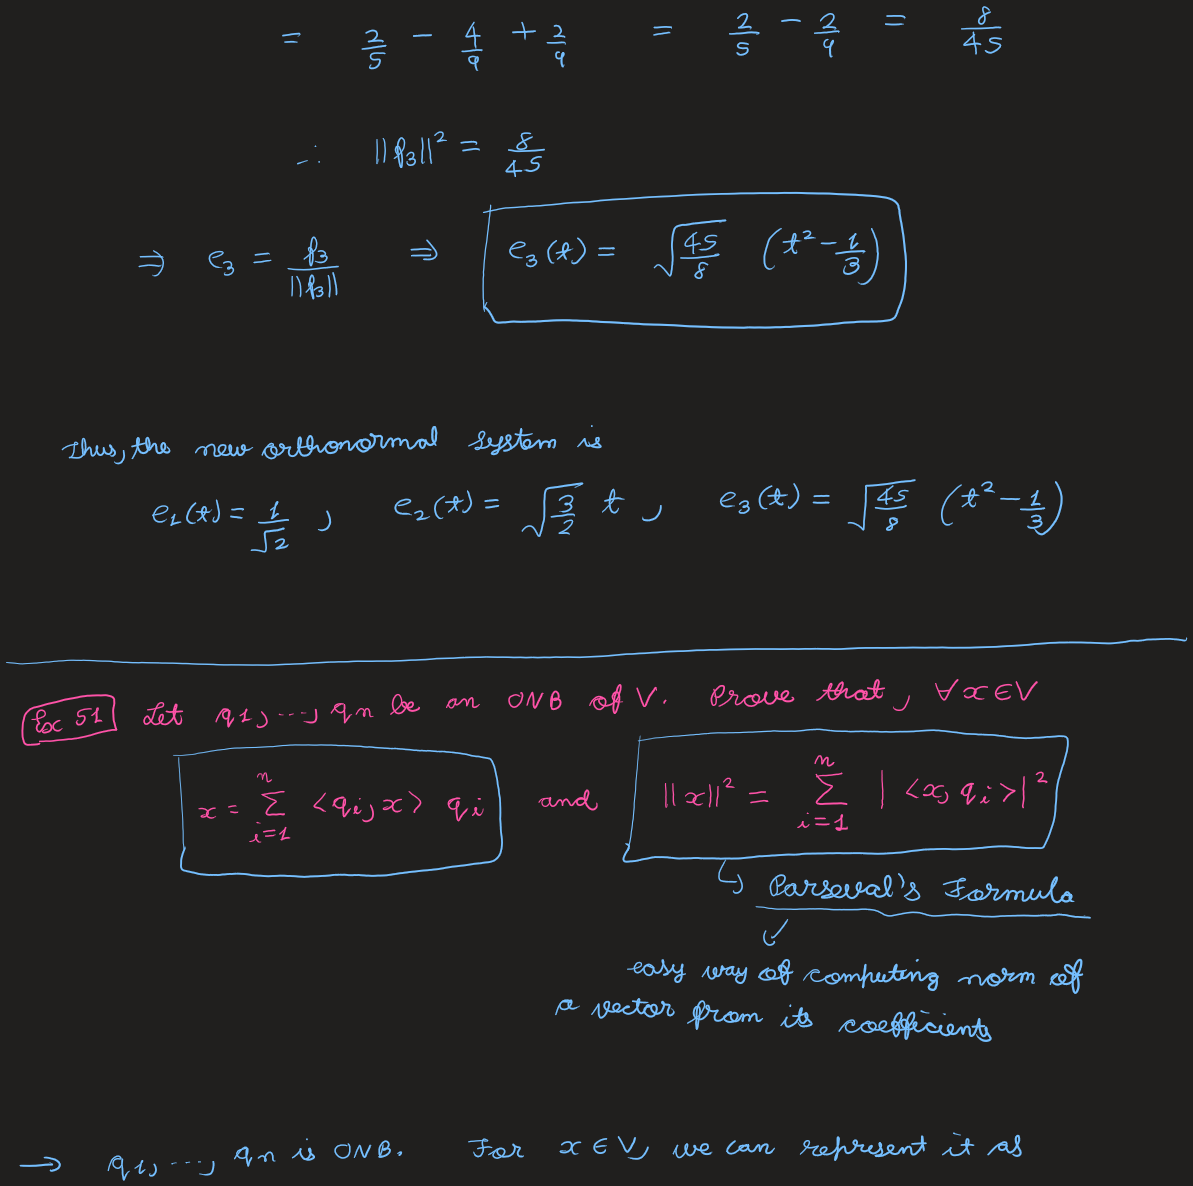 = 2/5 − 4/9 + 2/9 = 2/5 − 2/9 = 8/45
∴ ||f₃||² = 8/45
⇒ e₃ = f₃/||f₃|| ⇒ e₃(t) = √(45/8) (t² − 1/3)
Thus, the new orthonormal system is
e₁(t) = 1/√2 , e₂(t) = √(3/2) t , e₃(t) = √(45/8) (t² − 1/3)
Exc 51 Let q₁, ..., qₙ be an ONB of V. Prove that, ∀x∈V
x = ∑ᵢ₌₁ⁿ <qᵢ, x> qᵢ and ||x||² = ∑ᵢ₌₁ⁿ |<x, qᵢ>|²
↳ Parseval's Formula
↙
easy way of computing norm of
a vector from its coefficients
→ q₁, ..., qₙ is ONB. For x ∈ V, we can represent it as